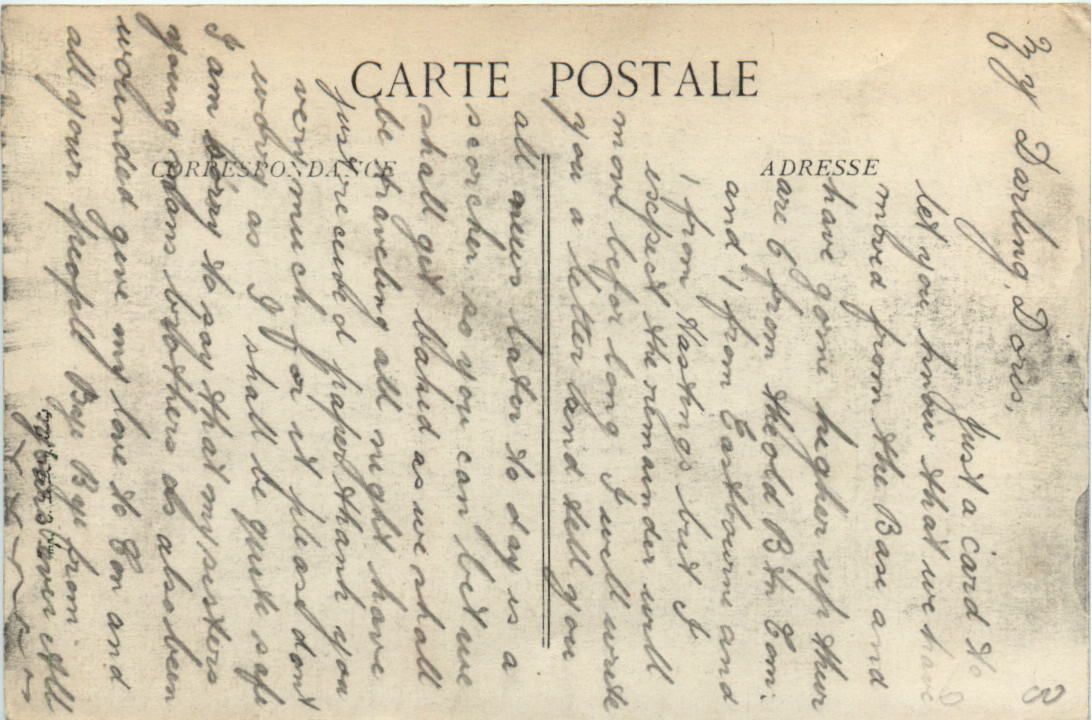 CARTE POSTALE
CORRESPONDANCE
ADRESSE
3
My Darling Dores,
Just a card to
let you know that we have
moved from the Base and
have gone higher up ther
are 6 from the old Bth Com:
and 1 from Eastbourne and
1 from Hastings but I
expect the remainder will
move befor long I will write
you a letter and tell you
all news later to day is a
scorcher so you can bet we
shall get baked as we shall
be traveling all night have
just recieved paper thank you
very much for it please dont
wory as I shall be quite safe
I am sorry to say that my sisters
young mans brothers as also been
wounded give my love to Con and
all your people Bye Bye from